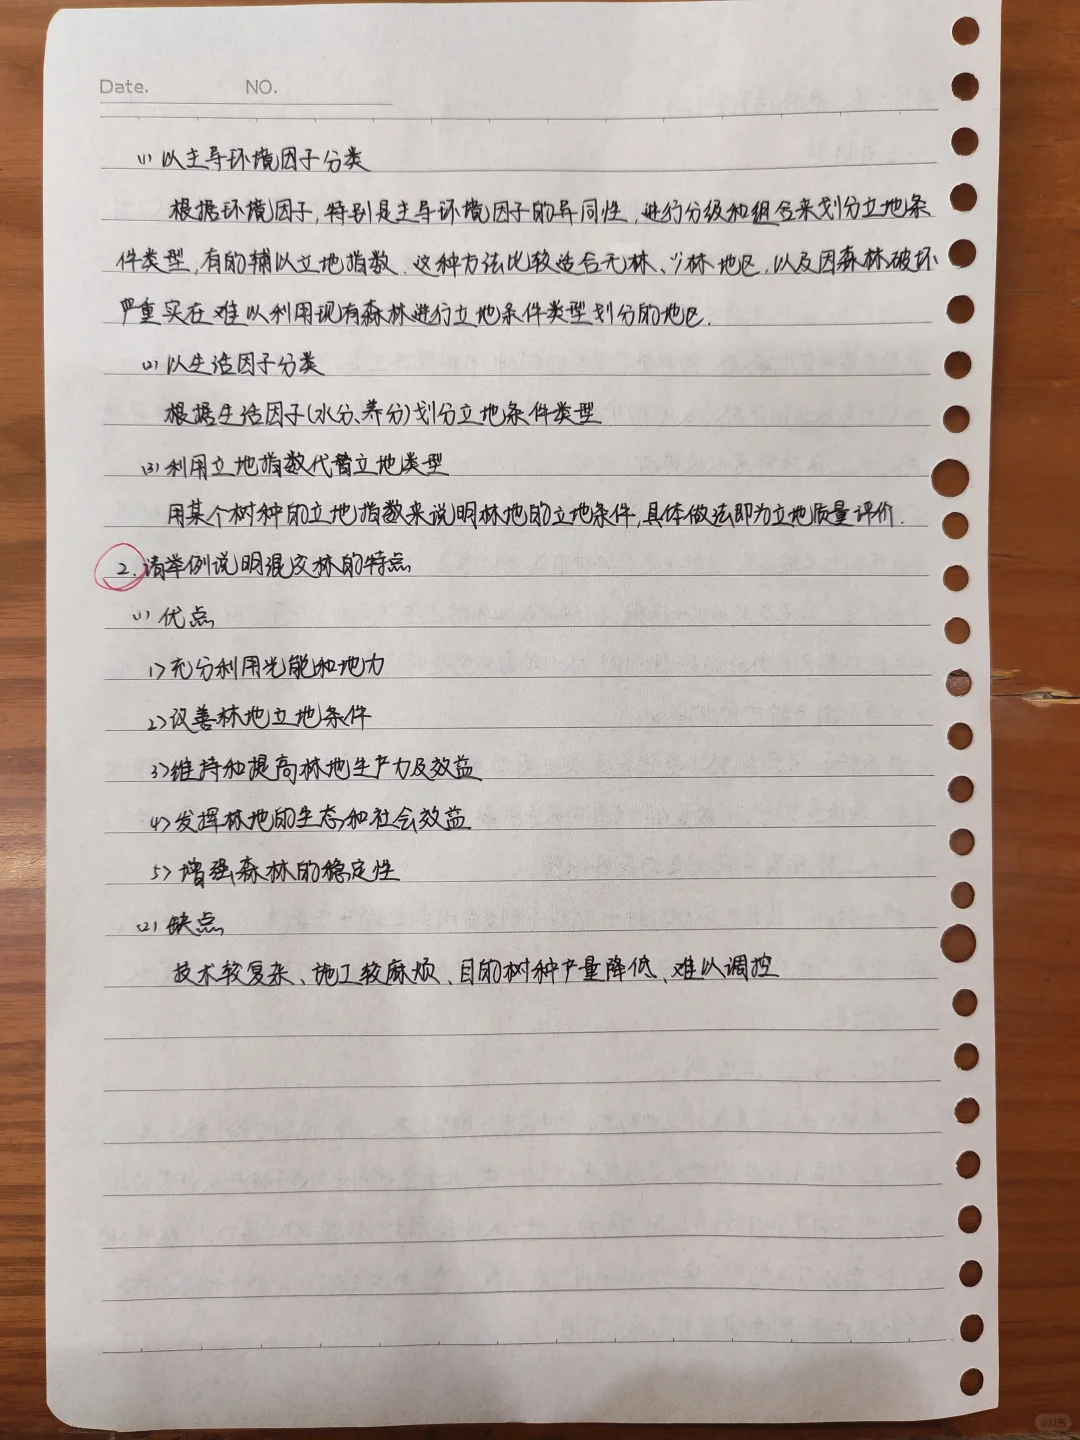 Date.    NO.
(1) 以主导环境因子分类
根据环境因子,特别是主导环境因子的异同性,进行分级和组合来划分立地条
件类型,有的辅以立地指数.这种方法比较适合无林、少林地区,以及因森林破坏
严重实在难以利用现有森林进行立地条件类型划分的地区.
(2) 以生活因子分类
根据生活因子(水分、养分)划分立地条件类型
(3) 利用立地指数代替立地类型
用某个树种的立地指数来说明林地的立地条件,具体做法即为立地质量评价.
2.请举例说明混交林的特点
(1) 优点
1>充分利用光能和地力
2>改善林地立地条件
3>维持和提高林地生产力及效益
4>发挥林地的生态和社会效益
5>增强森林的稳定性
(2) 缺点
技术较复杂、施工较麻烦、目的树种产量降低、难以调控
小红书